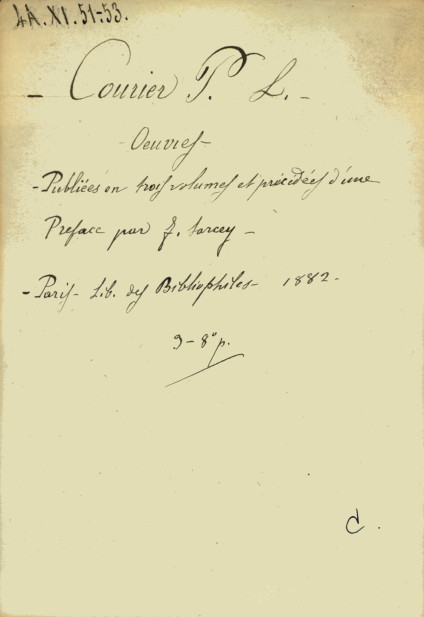 4A.XI.51-53.
- Courier P. L. -
- Oeuvres -
- Publiées en trois volumes et précédées d'une
Preface par F. Sarcey -
- Paris - Lib. des Bibliophiles - 1882 -
3 - 8º p.
C .